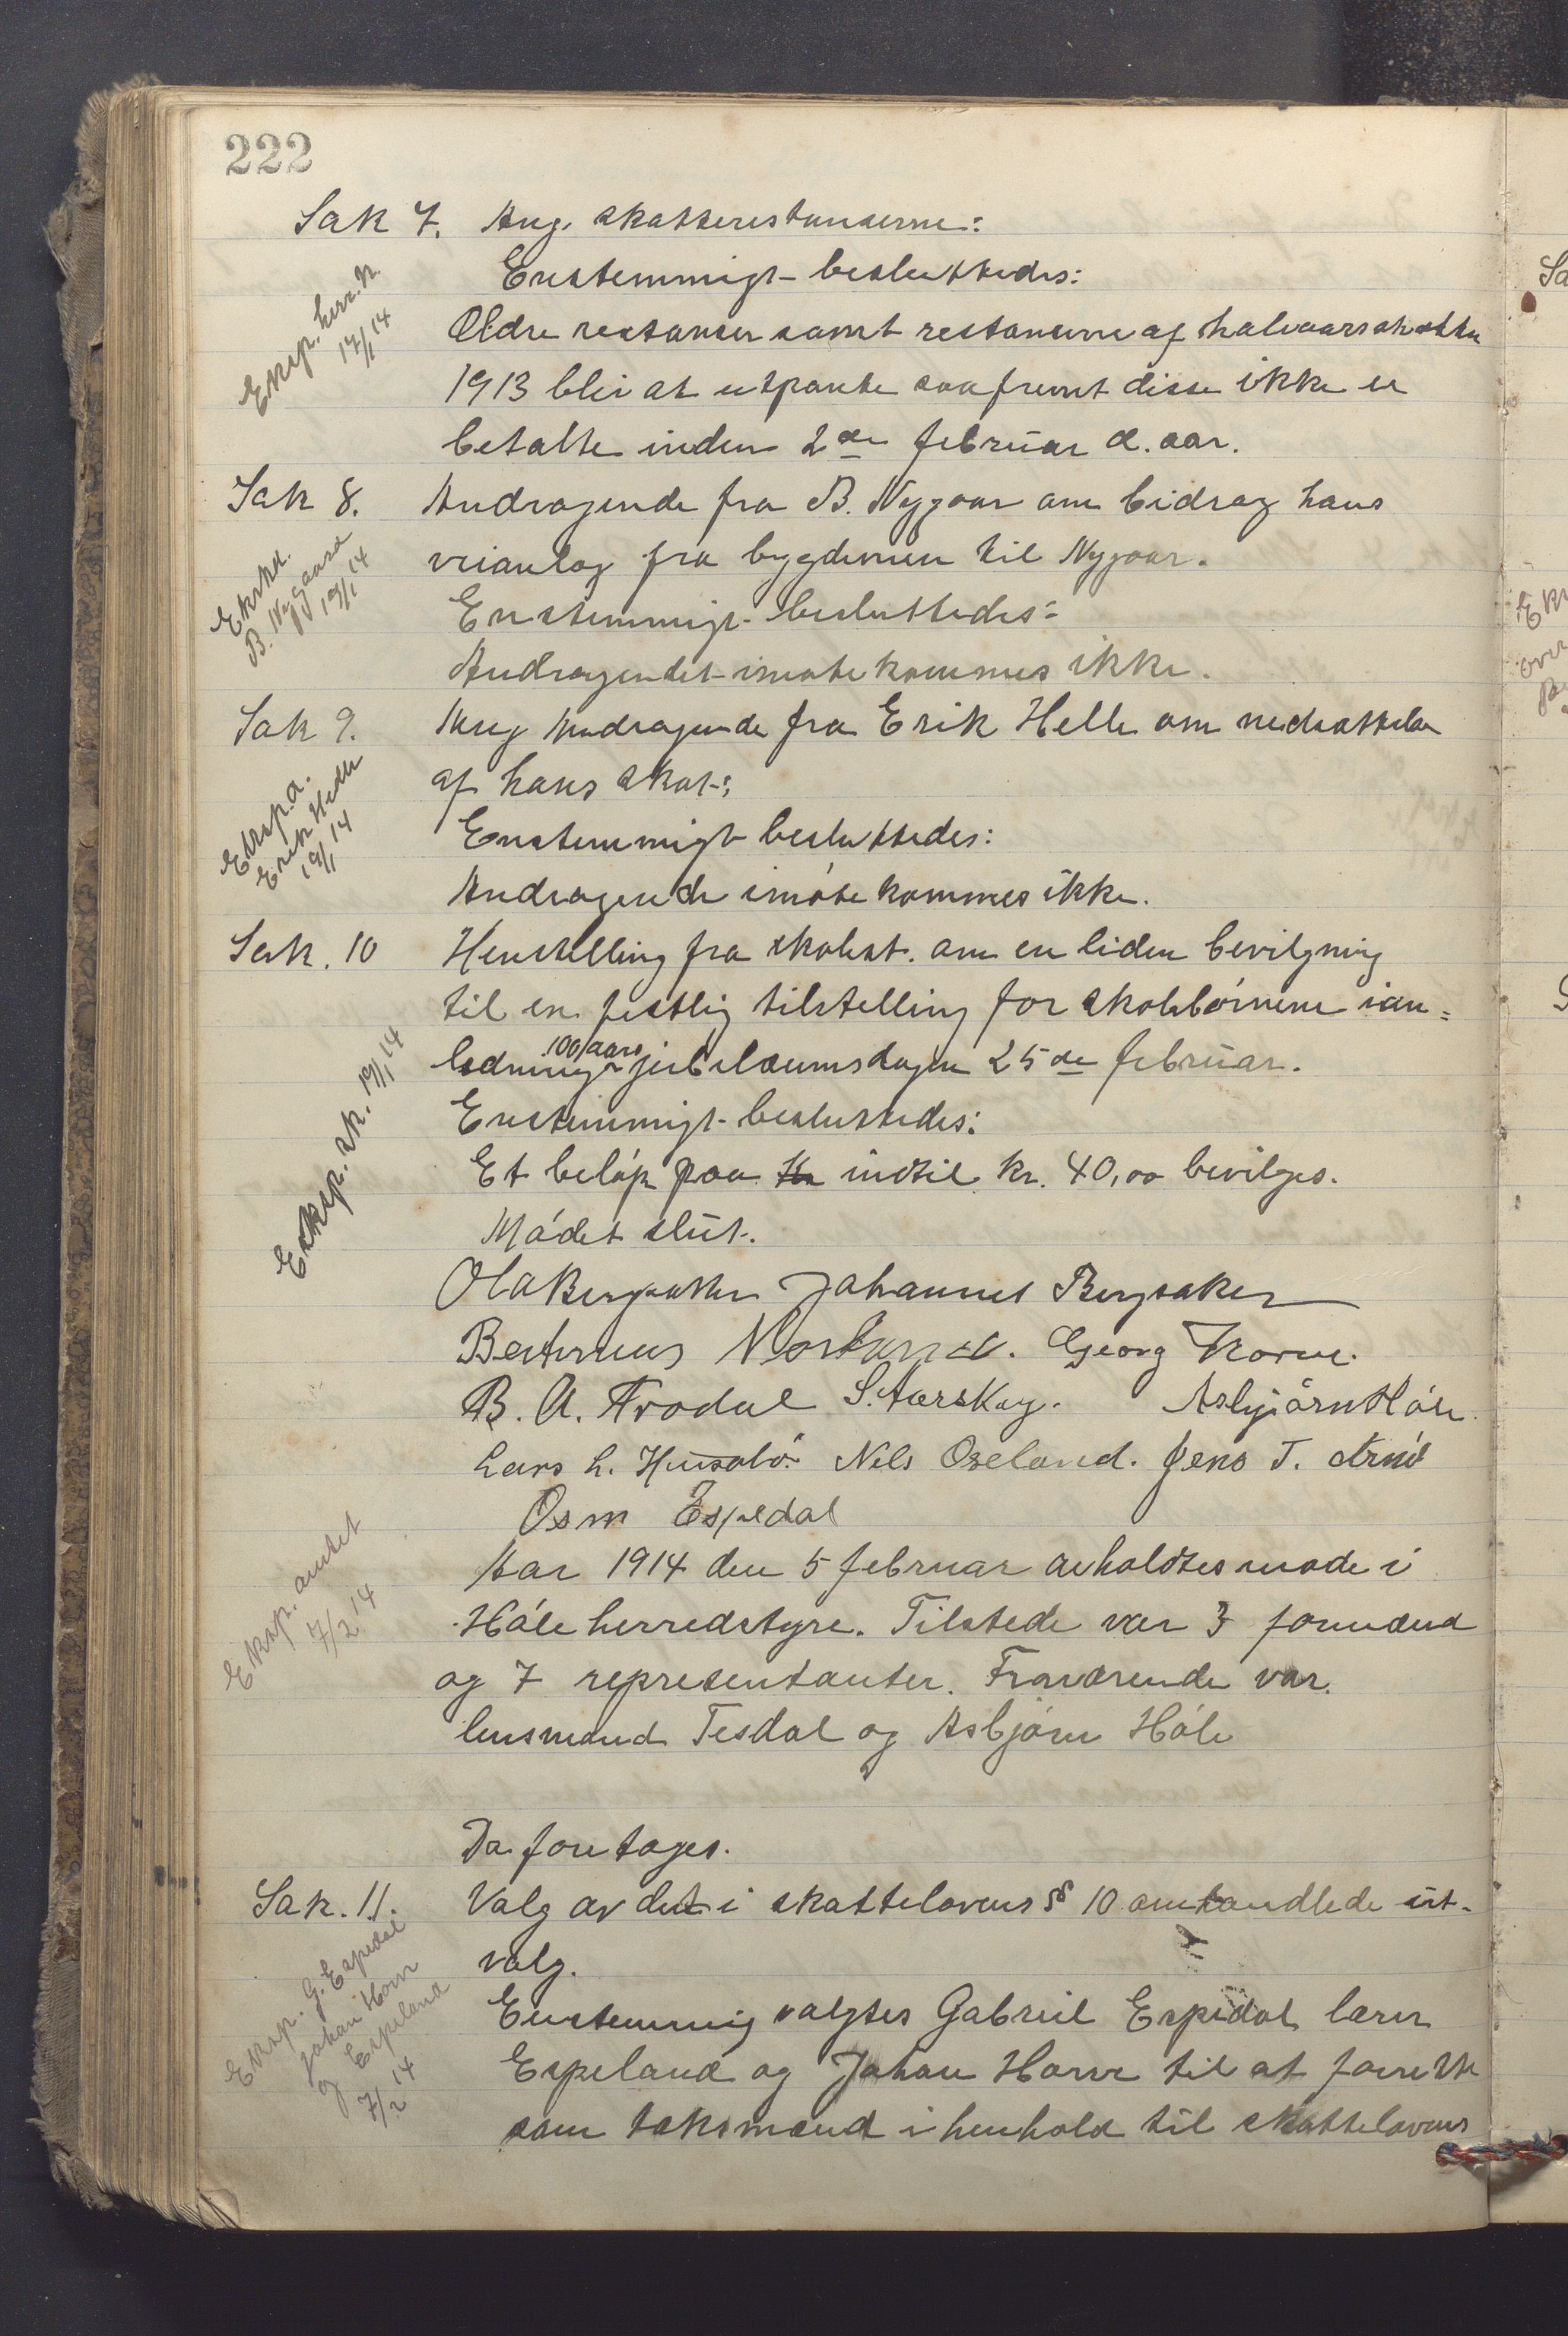 222
Sak 7. Ang. skatterestanserne:
Eksp. herr.k.
17/1 14
Enstemmigt besluttedes:
Ældre restanser samt restanserne af halvaarsskatten
1913 blir at utpante saafremt disse ikke er
betalte inden 2den februar d. aar.
Sak 8. Andragende fra B. Nygaar om bidrag hans
veianlæg fra bygdeveien til Nygaar.
B. Nygaard
19/1 14
Enstemmigt besluttedes:
Andragendet imøtekommes ikke.
Sak 9. Ang Andragende fra Erik Helle om nedsættelse
af hans skat:
Eksp. a.
Erik Helle
19/1 14
Enstemmigt besluttedes:
Andragende imøtekommes ikke.
Sak. 10 Henstilling fra skolest. om en liden bevilgning
til en festlig tilstelling for skolebørnene ian=
ledning 100 aars jubilæumsdagen 25de februar.
Eksp. sk. 19/1 14
Enstemmigt besluttedes:
Et beløp paa kr indtil kr. 40,00 bevilges.
Mødet slut.
Ola Bergsaker Johannes Bergsaker
Bertinius Nordland. Georg Horve.
B. A. Frodal S. Aarskog. Asbjørn Høle
Lars L. Husabø Nils Oseland. Jens T.
Osm Espedal
Eksp. amtet
7/2 14
Aar 1914 den 5 februar avholdtes møde i
Høle herredstyre. Tilstede var 3 formænd
og 7 representanter. Fraværende var
lensmand Tesdal og Asbjørn Høle
Da foretages.
Sak. 11. Valg av det i skattelovens § 10 omhandlede ut-
valg.
Eksp. G. Espedal
Johan Horve
og Espeland
7/2 14
Enstemmig valgtes Gabriel Espedal lærer
Espeland og Johan Horve til at forrette
som takstmænd i henhold til skattelovens